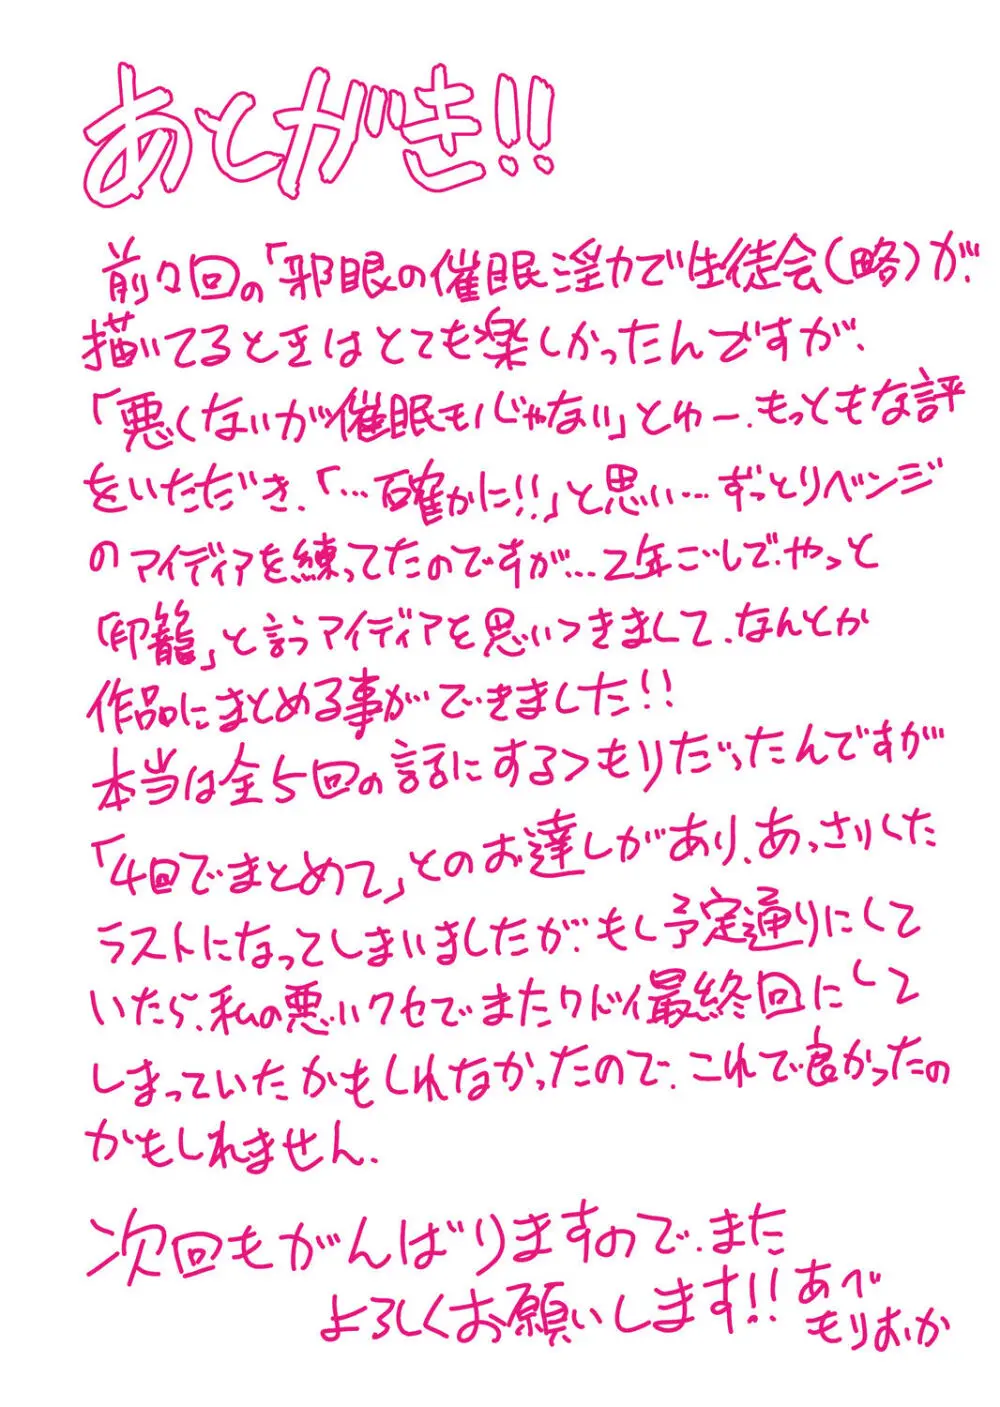 あとがき!!
前々回の「邪眼の催眠淫力で生徒会(略)」が、
描いてるときはとても楽しかったんですが、
「悪くないが催眠モノじゃない」とゆー、もっともな評
をいただき、「…確かに!!」と思い…ずっとリベンジ
のアイディアを練ってたのですが…2年ごしでやっと
「印籠」と言うアイディアを思いつきまして、なんとか
作品にまとめる事ができました!!
本当は全5回の話にするつもりだったんですが
「4回でまとめて」とのお達しがあり、あっさりした
ラストになってしまいましたが、もし予定通りにして
いたら、私の悪いクセでまたクドイ最終回にして
しまっていたかもしれなかったので、これで良かったの
かもしれません.
次回もがんばりますので、また
よろしくお願いします!!
あべ
もりおか